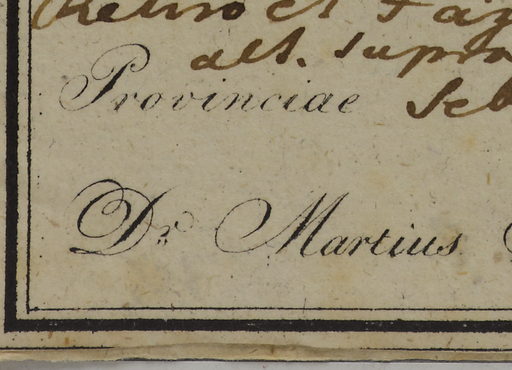 Retiro et Faz
alt. supra
Provinciae Seb
Dr. Martius